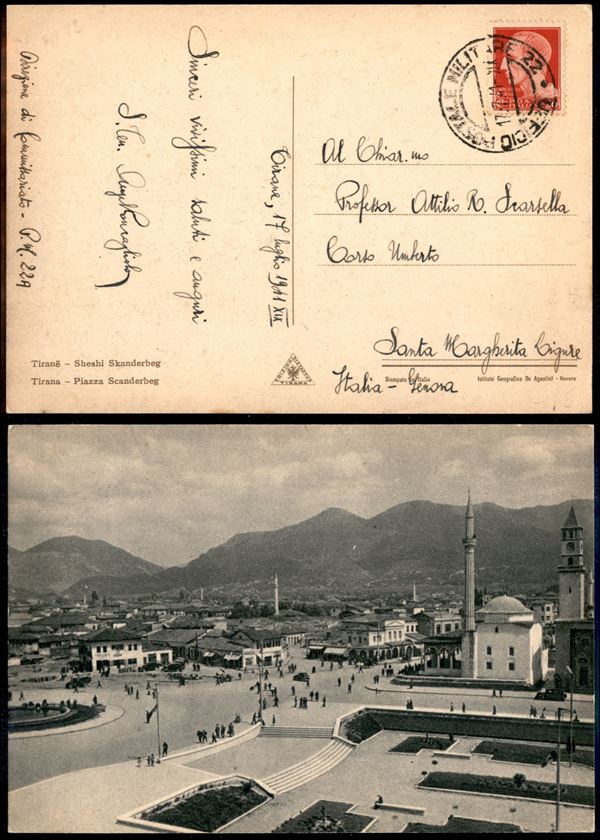 Direzione di Commissariato - P.M. 22A
S. Ten.
Sinceri vivissimi saluti e auguri
Tirane, 17 luglio 1941 XIX
UFFICIO POSTALE MILITARE 22
Al Chiar.mo
Professor Attilio R. Scarsella
Corso Umberto
Santa Margherita Ligure
Italia - Genova
Tiranë – Sheshi Skanderbeg
Tirana – Piazza Scanderbeg
TIRANA
Stampato in Italia
Istituto Geografico De Agostini - Novara